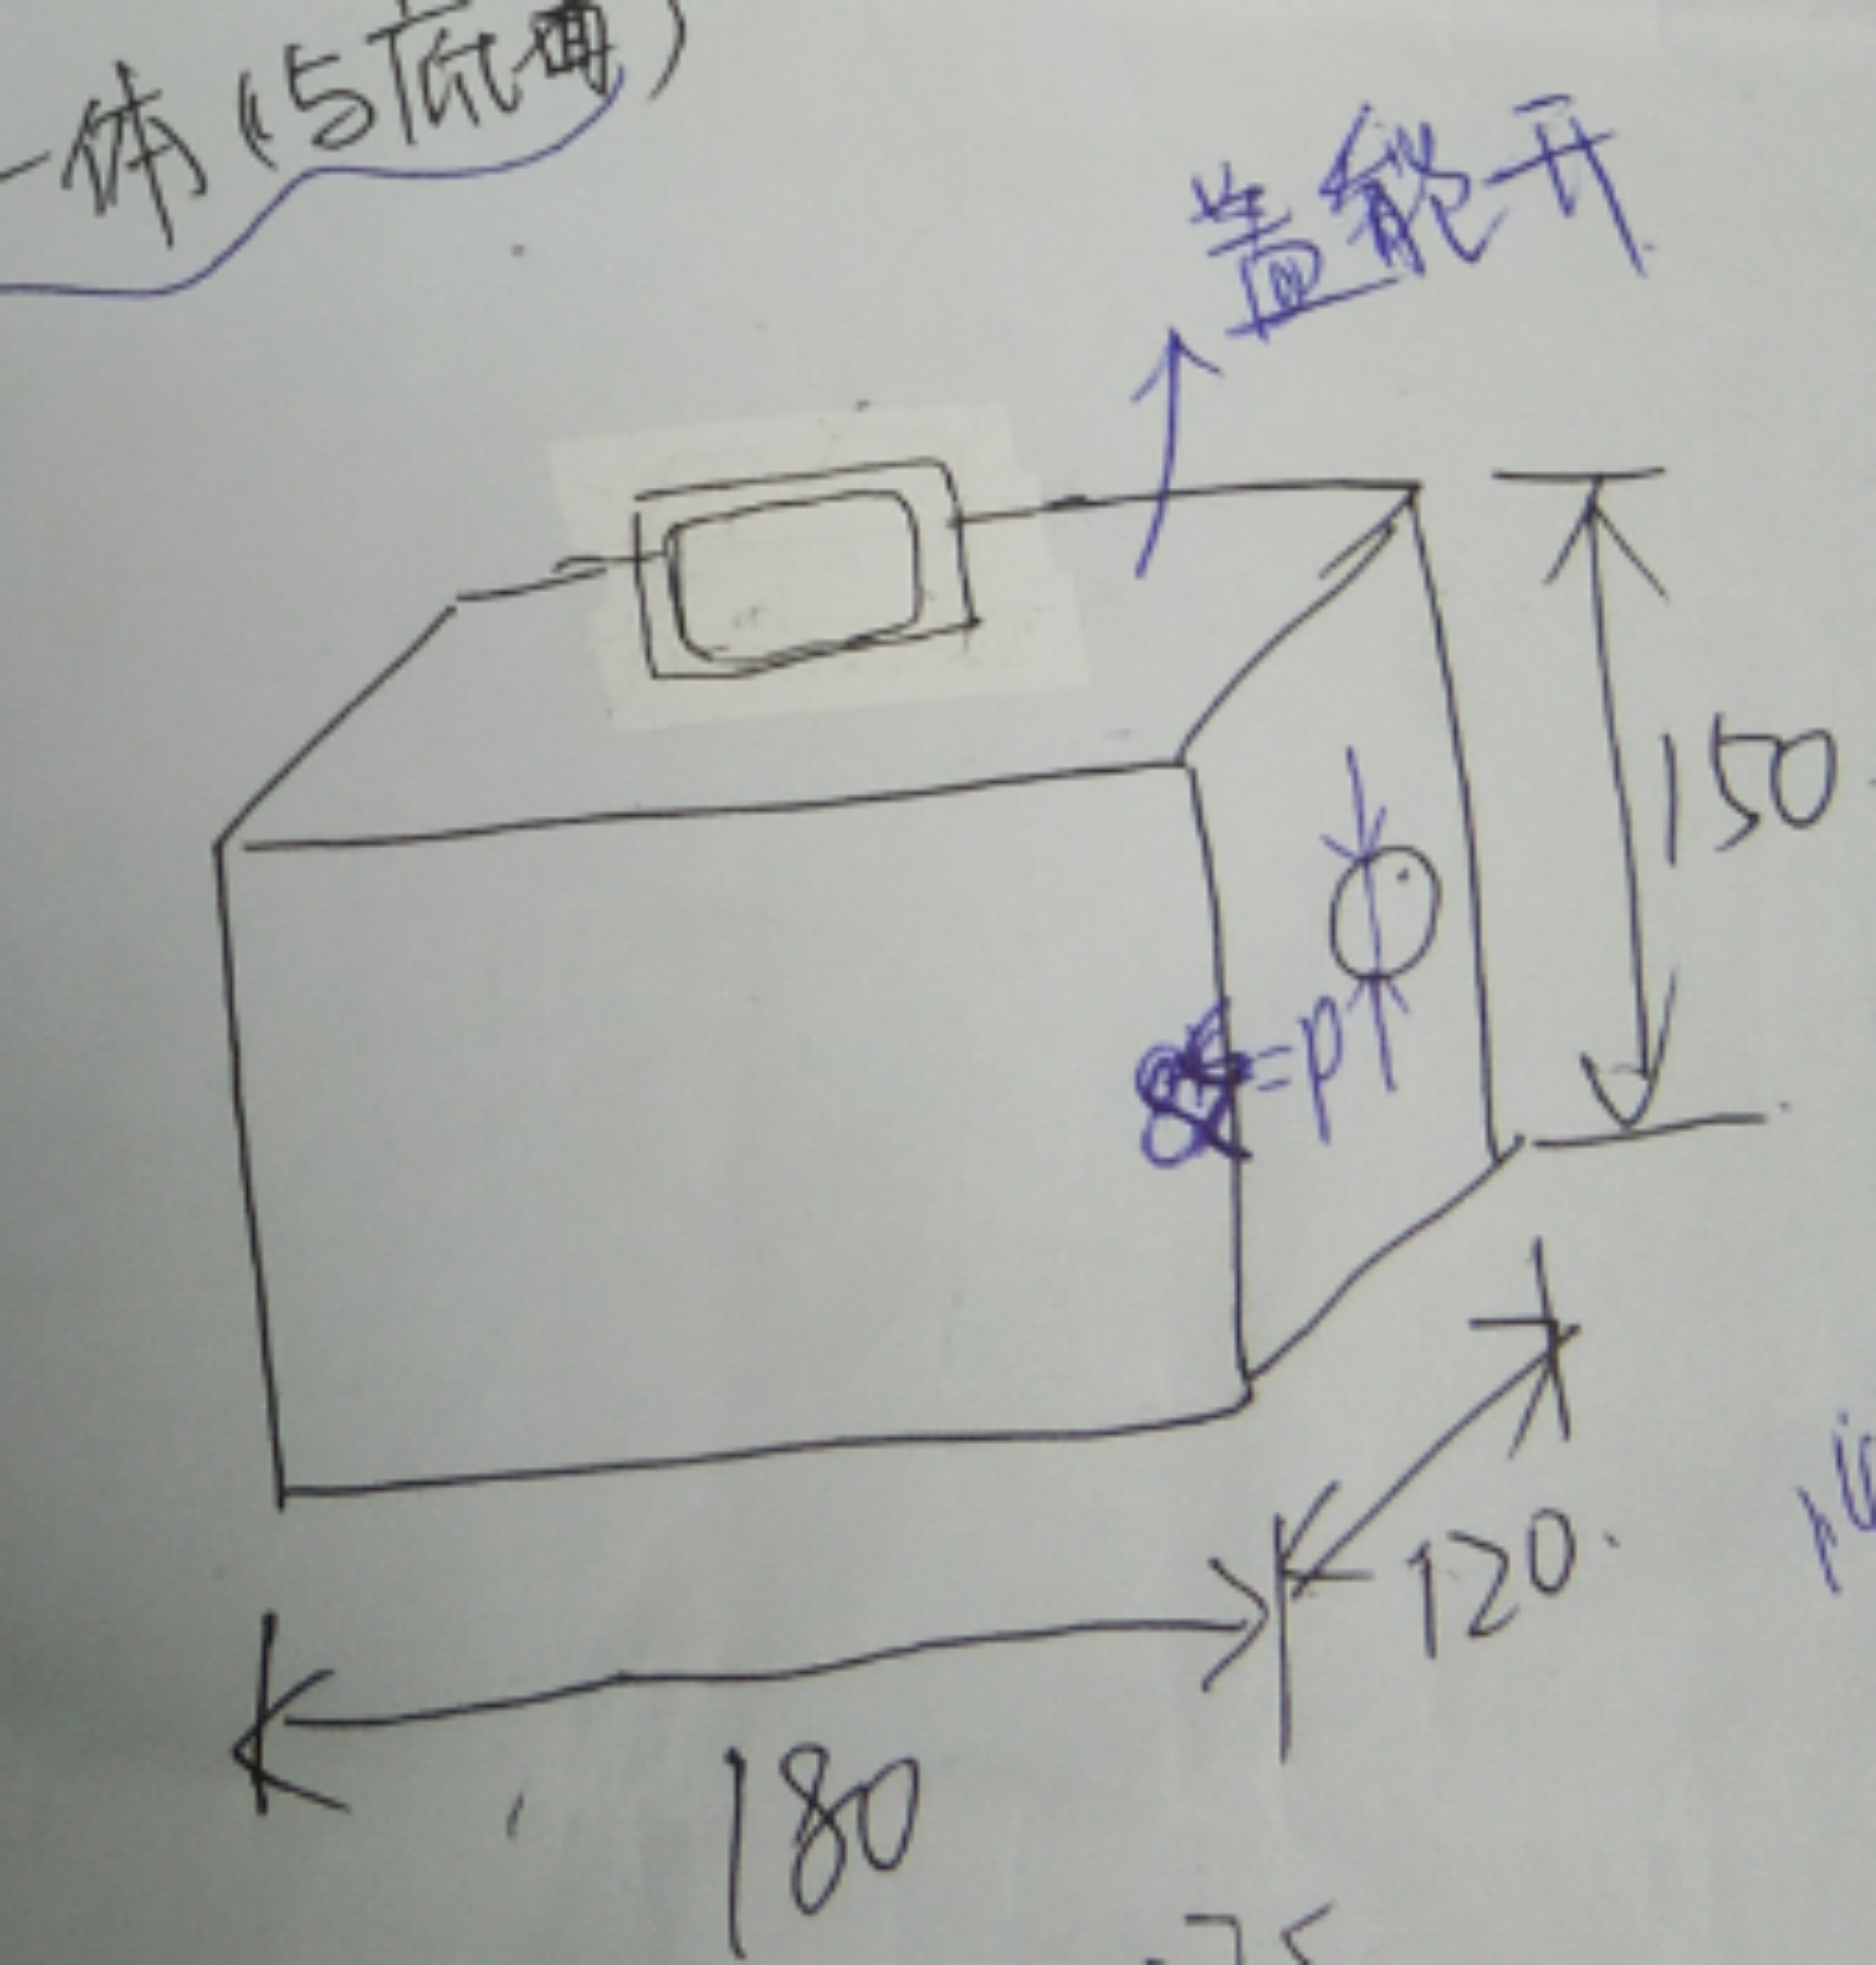 一体(与底面)
盖能开
150
=P
120
180